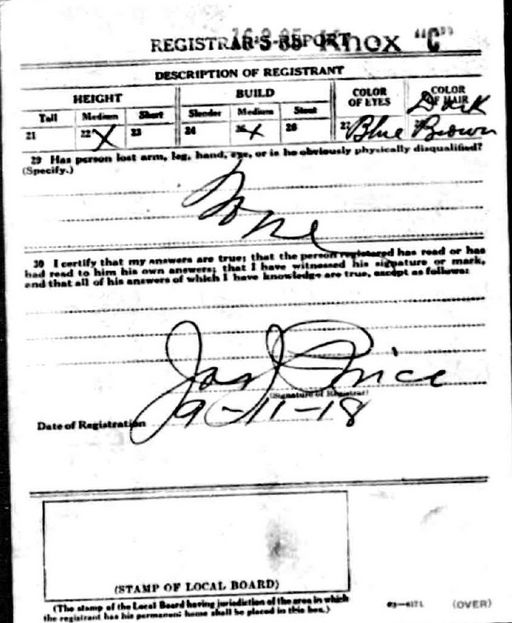 REGISTRAR'S REPORT Knox "C"
DESCRIPTION OF REGISTRANT
HEIGHT BUILD COLOR OF EYES COLOR OF HAIR
Tall Medium Short Slender Medium Stout
21 22 X 23 24 25 X 26 27 Blue Dark Brown
29 Has person lost arm, leg, hand, eye, or is he obviously physically disqualified?
(Specify.)
None
30 I certify that my answers are true; that the person registered has read or has
had read to him his own answers; that I have witnessed his signature or mark,
and that all of his answers of which I have knowledge are true, except as follows:
Jas J Price
(Signature of Registrar)
Date of Registration 9-11-18
(STAMP OF LOCAL BOARD)
(The stamp of the Local Board having jurisdiction of the area in which
the registrant has his permanent home shall be placed in this box.)
03—6171 (OVER)